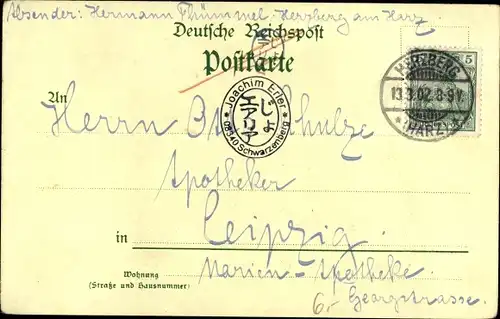 Absender: Hermann Thümmel. Herzberg am Harz
Deutsche Reichspost
Postkarte
HERZBERG
13.3.02.8-9V.
* (HARZ) *
5
* Joachim Erler *
08340 Schwarzenberg
じょ
エアリア
An
Herrn Schulze
Apotheker
in Leipzig
Marien-Apotheke.
Wohnung
(Straße und Hausnummer)
6.- Georgstrasse.